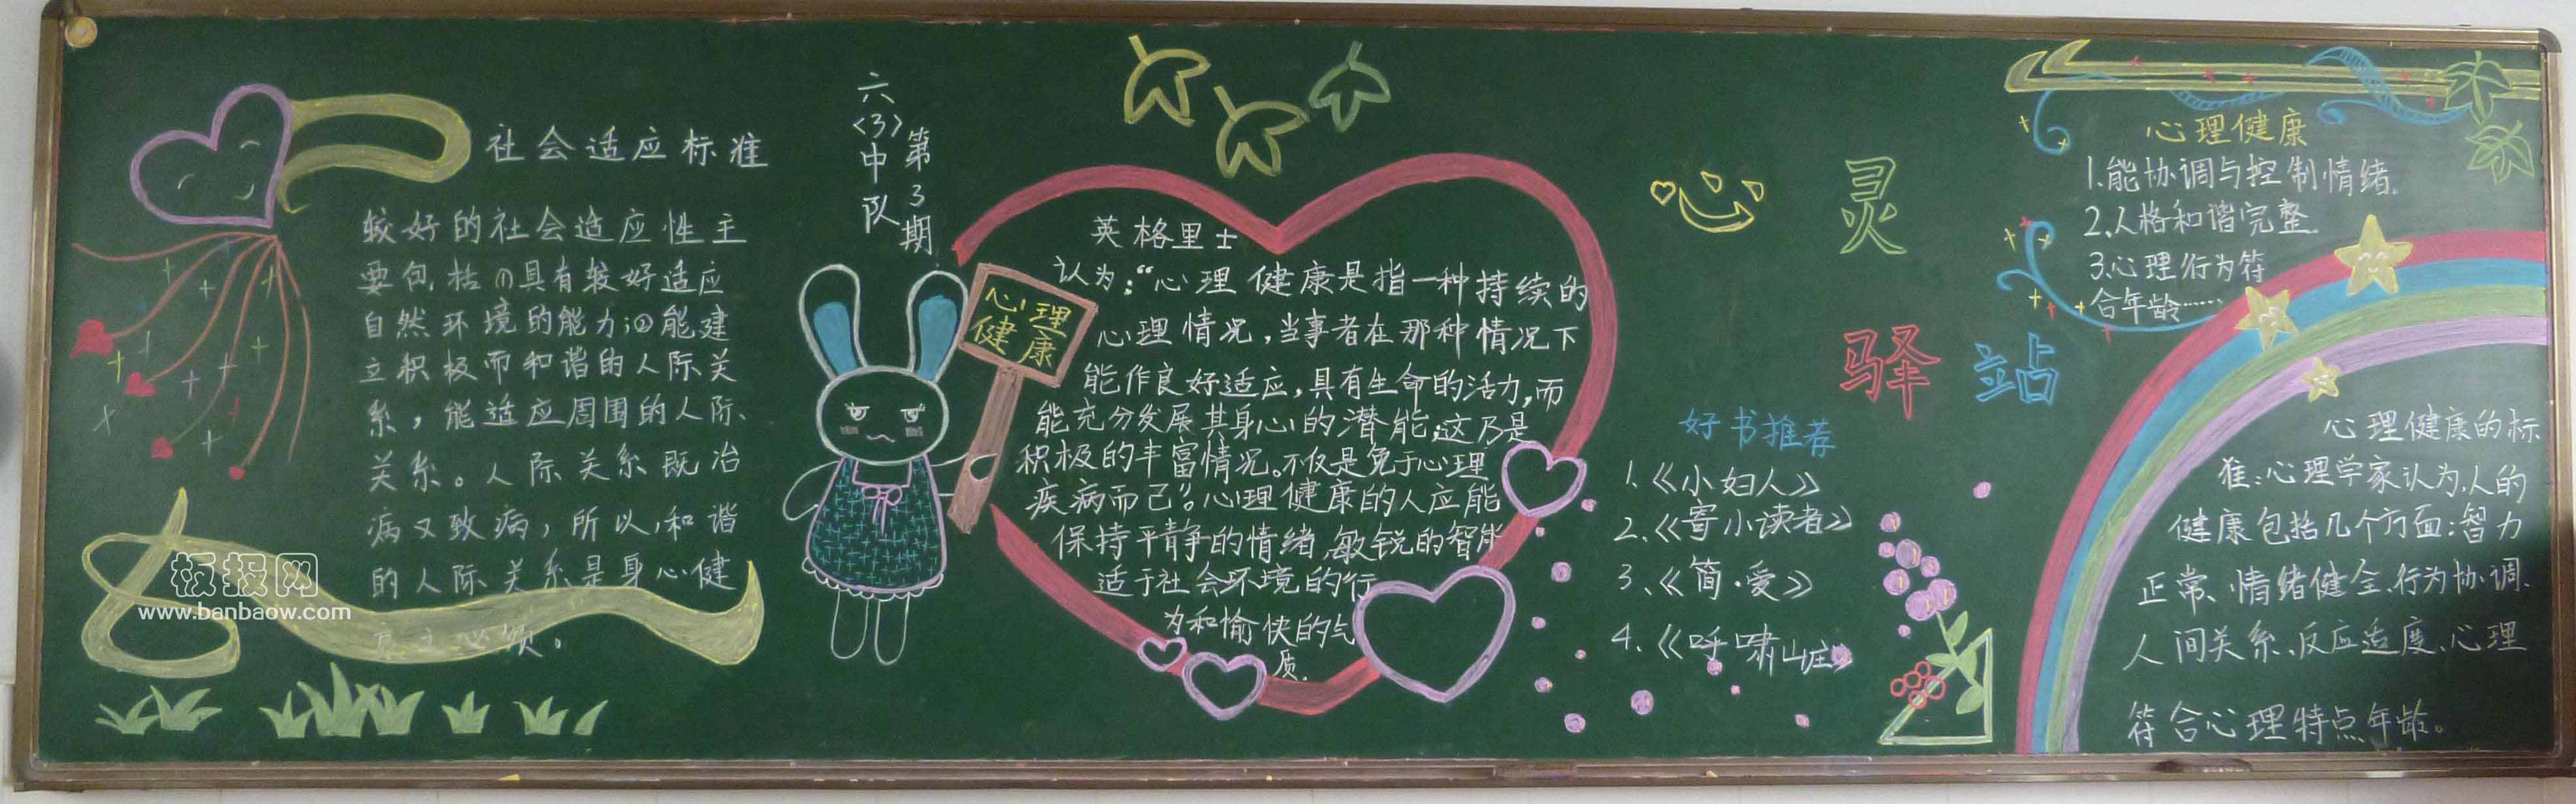 社会适应标准
较好的社会适应性主
要包括(1)具有较好适应
自然环境的能力;②能建
立积极而和谐的人际关
系，能适应周围的人际、
关系。人际关系既治
病又致病，所以，和谐
的人际关系是身心健
板报网
www.banbaow.com
六
〈3〉
中
队
第
3
期
心理
健康
英格里士
认为：“心理健康是指一种持续的
心理情况，当事者在那种情况下
能作良好适应，具有生命的活力，而
能充分发展其身心的潜能；这乃是
积极的丰富情况。不仅是免于心理
疾病而已”。心理健康的人应能
保持平静的情绪、敏锐的智能
适于社会环境的行
为和愉快的气
质.
心灵
驿站
好书推荐
1.《小妇人》
2.《寄小读者》
3.《简·爱》
4.《呼啸山庄》
心理健康
1.能协调与控制情绪.
2.人格和谐完整.
3.心理行为符
合年龄……
心理健康的标
准:心理学家认为,人的
健康包括几个方面:智力
正常、情绪健全、行为协调、
人间关系、反应适度、心理
符合心理特点年龄。